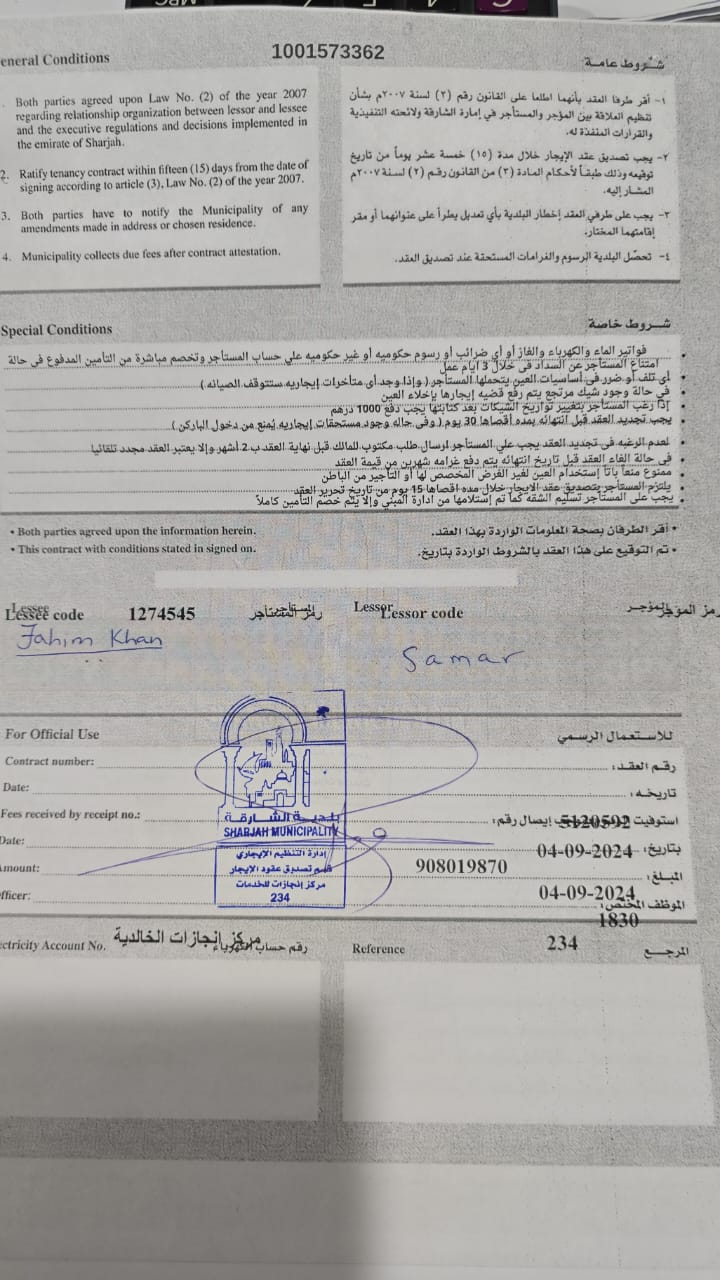 1001573362
eneral Conditions
شروط عامة
Both parties agreed upon Law No. (2) of the year 2007
regarding relationship organization between lessor and lessee
and the executive regulations and decisions implemented in
the emirate of Sharjah.
2. Ratify tenancy contract within fifteen (15) days from the date of
signing according to article (3), Law No. (2) of the year 2007.
3. Both parties have to notify the Municipality of any
amendments made in address or chosen residence.
4. Municipality collects due fees after contract attestation.
١- أقر طرفا العقد بأنهما اطلعا على القانون رقم (٢) لسنة ٢٠٠٧م بشأن
تنظيم العلاقة بين المؤجر والمستأجر في إمارة الشارقة ولائحته التنفيذية
والقرارات المنفذة له.
٢- يجب تصديق عقد الإيجار خلال مدة (١٥) خمسة عشر يوماً من تاريخ
توقيعه وذلك طبقاً لأحكام المادة (٣) من القانون رقم (٢) لسنة ٢٠٠٧م
المشار إليه.
٣- يجب على طرفي العقد إخطار البلدية بأي تعديل يطرأ على عنوانهما أو مقر
إقامتهما المختار.
٤- تحصّل البلدية الرسوم والغرامات المستحقة عند تصديق العقد.
Special Conditions
شروط خاصة
فواتير الماء والكهرباء والغاز أو أي ضرائب أو رسوم حكوميه أو غير حكوميه علي حساب المستأجر وتخصم مباشرة من التأمين المدفوع في حالة
امتناع المستأجر عن السداد في خلال 3 أيام عمل
أي تلف أو ضرر في أساسيات العين يتحملها المستأجر ( وإذا وجد أي متأخرات إيجاريه ستتوقف الصيانه )
في حالة وجود شيك مرتجع يتم رفع قضيه إيجارها بإخلاء العين
إذا رغب المستأجر بتغيير تواريخ الشيكات بعد كتابتها يجب دفع 1000 درهم
يجب تجديد العقد قبل انتهائه بمده أقصاها 30 يوم ( وفي حاله وجود مستحقات إيجاريه يُمنع من دخول الباركن )
لعدم الرغبه في تجديد العقد يجب علي المستأجر ارسال طلب مكتوب للمالك قبل نهاية العقد ب 2 أشهر وإلا يعتبر العقد مجدد تلقائيا
في حالة الغاء العقد قبل تاريخ انتهائه يتم دفع غرامه شهرين من قيمة العقد
ممنوع منعاً باتاً إستخدام العين لغير الغرض المخصص لها أو التأجير من الباطن
يلتزم المستأجر بتصديق عقد الإيجار خلال مده اقصاها 15 يوم من تاريخ تحرير العقد
يجب على المستأجر تسليم الشقه كما تم إستلامها من ادارة المبني وإلا يتم خصم التأمين كاملاً
• Both parties agreed upon the information herein.
• أقر الطرفان بصحة المعلومات الواردة بهذا العقد.
• This contract with conditions stated in signed on.
• تم التوقيع على هذا العقد بالشروط الواردة بتاريخ.
Lessee
Lessee code 1274545 رمز المستأجر
المستأجر
Lessor
Lessor code
رمز المؤجر
المؤجر
Fahim Khan
Samar
For Official Use
للاستعمال الرسمي
Contract number:
رقم العقد:
Date:
تاريخه:
Fees received by receipt no.:
5120592
Date:
بتاريخ: 04-09-2024
mount:
908019870
المبلغ:
04-09-2024
fficer:
الموظف المختص:
1830
بلدية الشارقة
SHARJAH MUNICIPALITY
إدارة التنظيم الإيجاري
قسم تصديق عقود الإيجار
مركز إنجازات للخدمات
234
ectricity Account No.
مركز إنجازات الخالدية
رقم حساب الكهرباء
Reference
234
المرجع